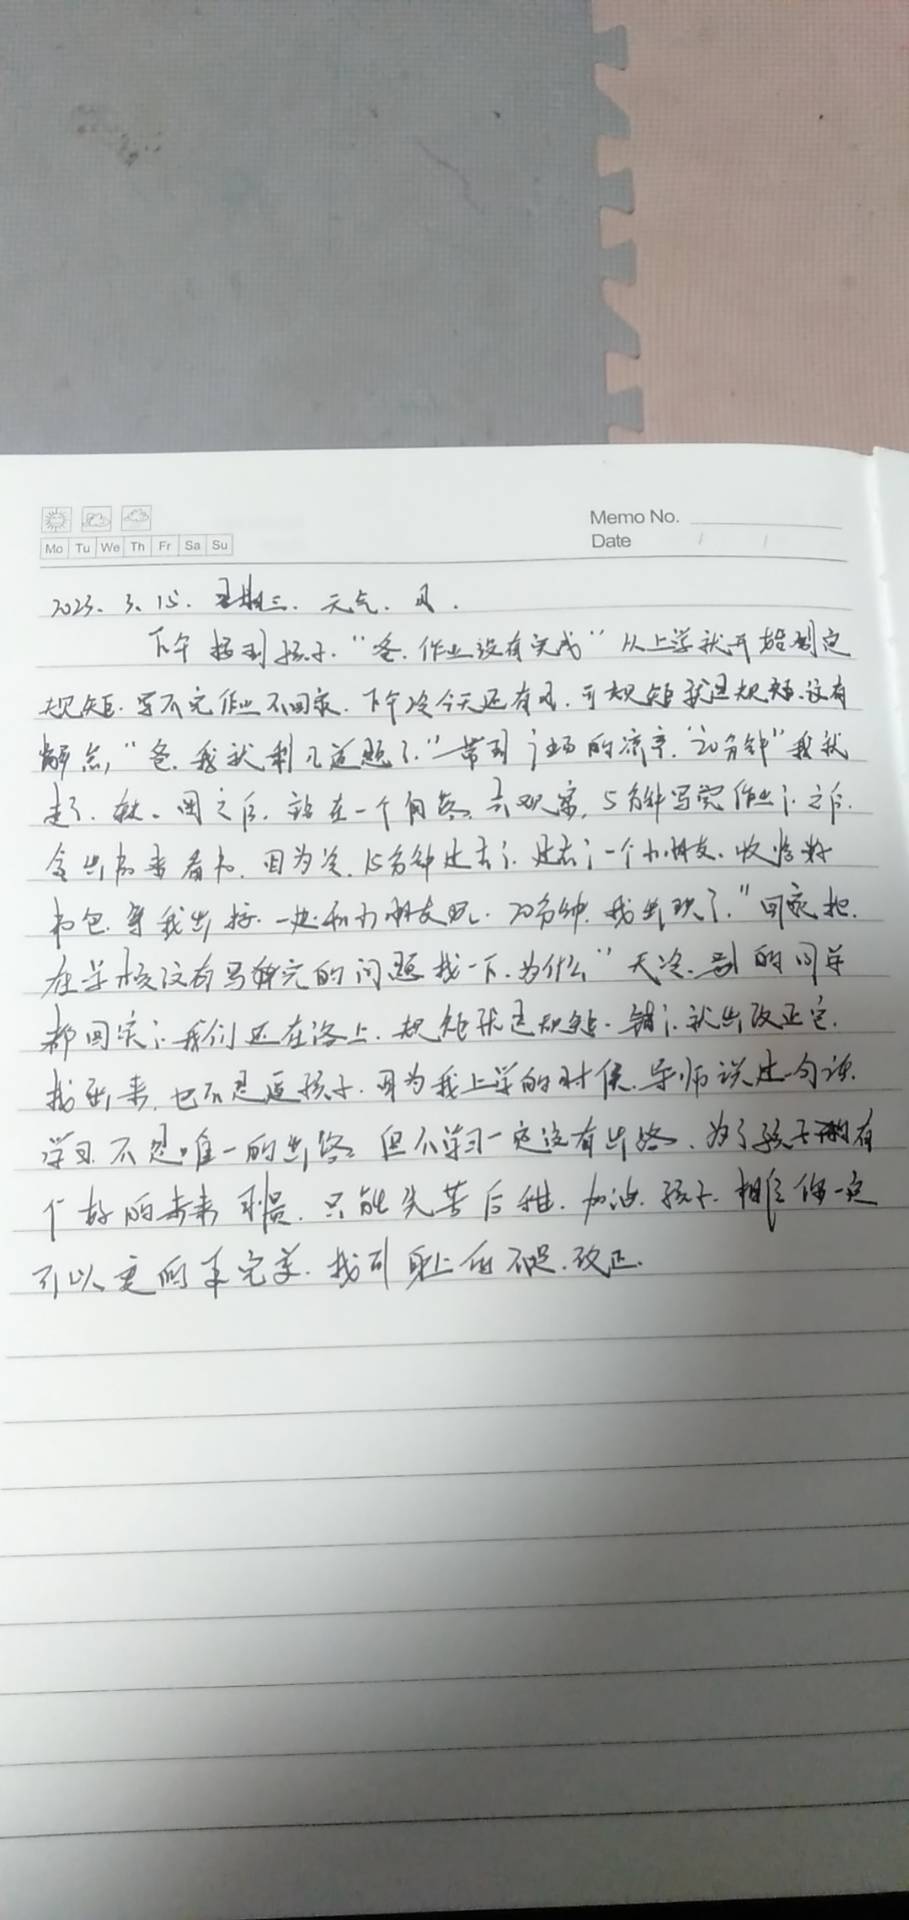 Memo No.
Mo Tu We Th Fr Sa Su
Date / /
2023. 3. 15. 星期三. 天气. 风.
下午接到孩子. “爸. 作业没有完成” 从上学就开始制定
规矩. 写不完作业不回家. 下午冷今天还有风. 可规矩就是规矩. 没有
解点, “爸. 我就剩几道题了.” 带到广场的凉亭. “20分钟” 我就
走了. 一圈之后. 站在一个角落 去观察, 5分钟写完作业了. 之后.
拿出书来看书. 因为冷. 15分钟过去了. 过去了一个小朋友. 收拾好
书包. 等我出
20分钟. 我出现了. “回家把.
在学校没有写完的问题找一下. 为什么” 天冷. 别的同学
都回家了. 我们还在路上. 规矩就是规矩. 错了. 就出改正它.
找出来. 也不是逼孩子. 因为我上学的时候. 导师说过一句话.
学习不是唯一的出路 但不学习一定没有出路. 为了孩子有
个好的未来 只能先苦后甜. 加油. 孩子. 相信你一定
可以更完美. 找到身上的不足. 改正.